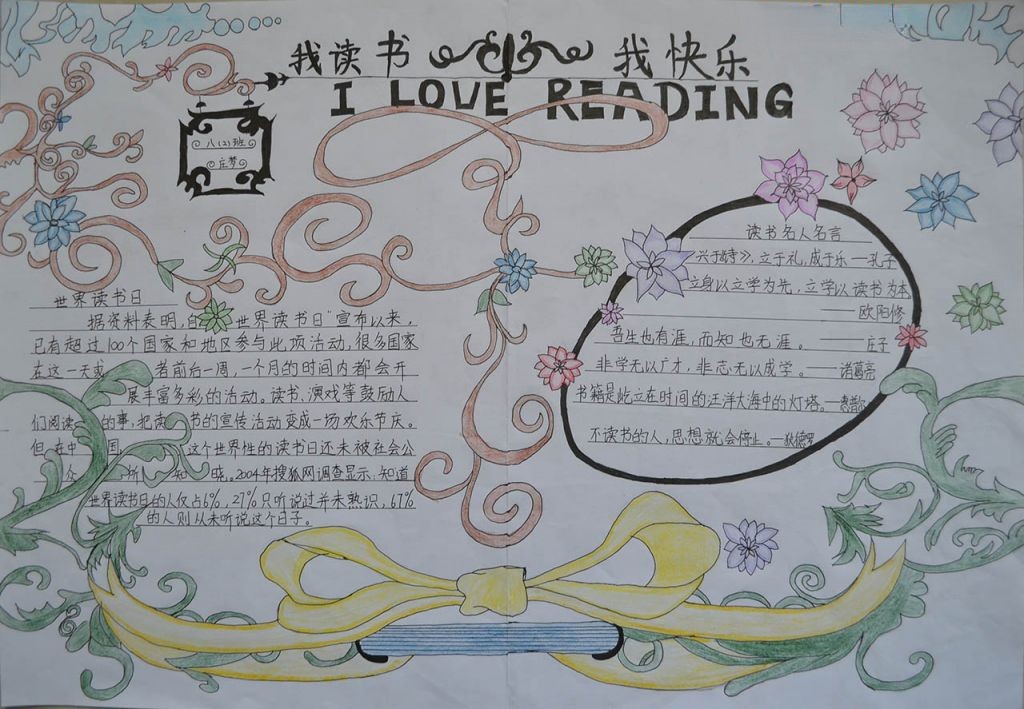 我读书 我快乐
I LOVE READING
八(2)班
庄梦
世界读书日
据资料表明,自 "世界读书日"宣布以来,
已有超过100个国家和地区参与此项活动,很多国家
在这一天或 者前后一周,一个月的时间内都会开
展丰富多彩的活动。读书、演戏等鼓励人
们阅读 的事,把读 书的宣传活动变成一场欢乐节庆。
但在中 国, 这个世界性的读书日还未被社会公
众 所 知 晓。2004年搜狐网调查显示:知道
世界读书日的人仅占6%,27%只听说过并未熟识,67%
的人则从未听说这个日子。
读书名人名言
兴于诗》,立于礼,成于乐—孔子
立身以立学为先,立学以读书为本
——欧阳修
吾生也有涯,而知也无涯。——庄子
非学无以广才,非志无以成学。——诸葛亮
书籍是屹立在时间的汪洋大海中的灯塔。
不读书的人,思想就会停止。—狄德罗